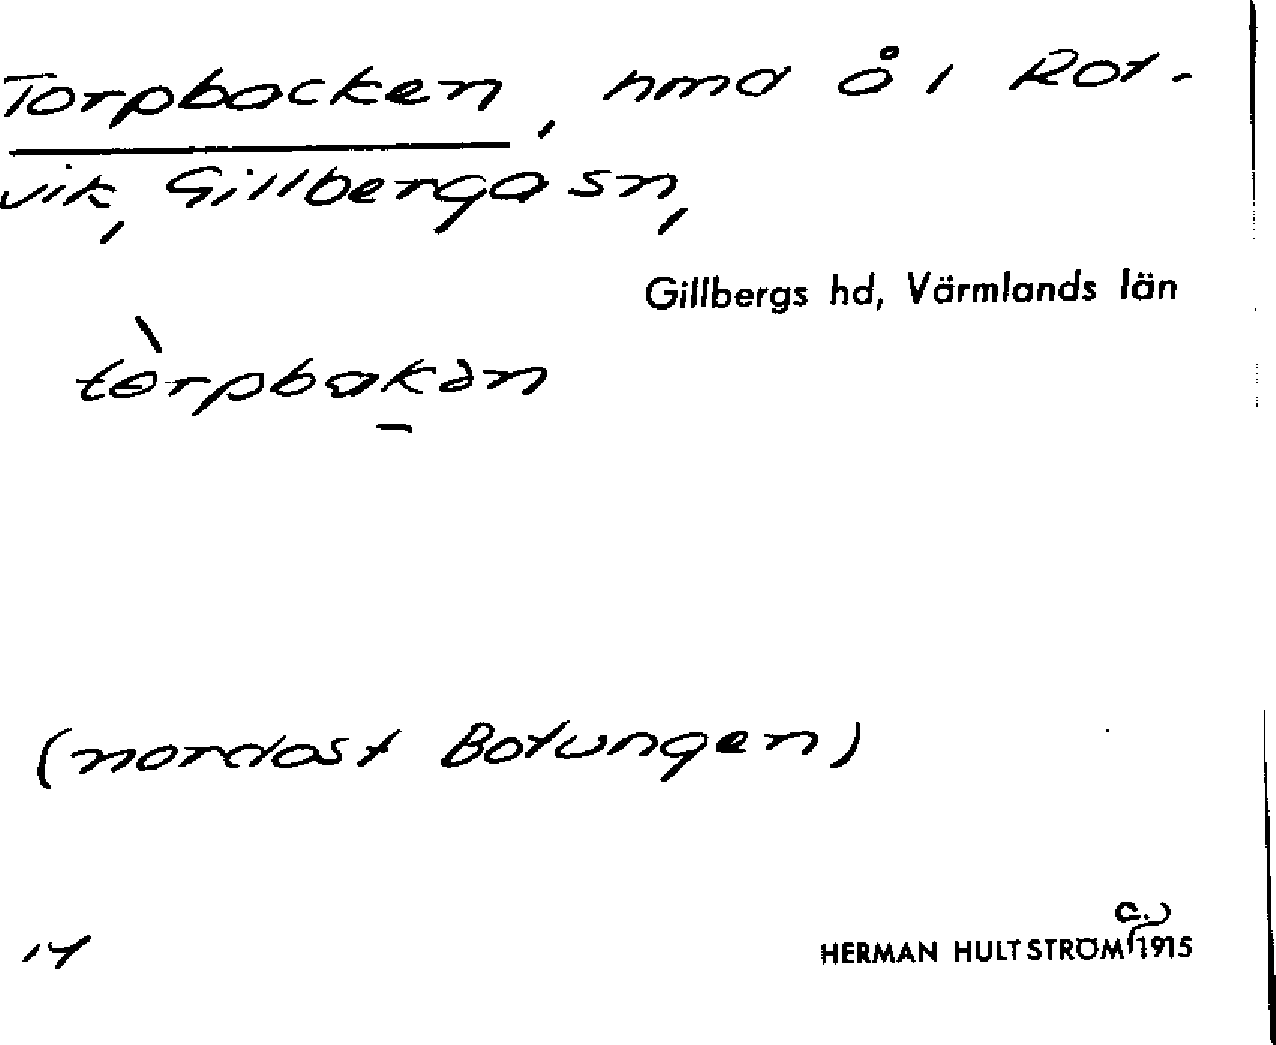 Torpbacken, nmd å i Rot-
vik, Gillberga sn,
Gillbergs hd, Värmlands län
tòrpbakən
(nordost Botungen)
14
HERMAN HULTSTRÖM c. 1915